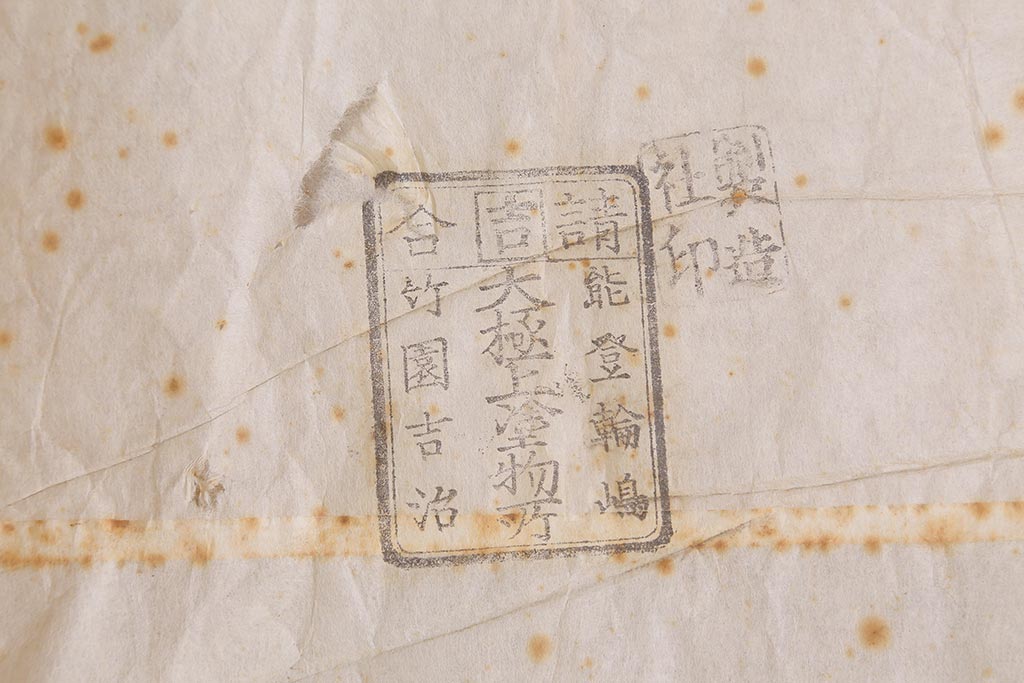 製造
社印
請吉合
能登輪嶋
大極上塗物所
竹園吉治